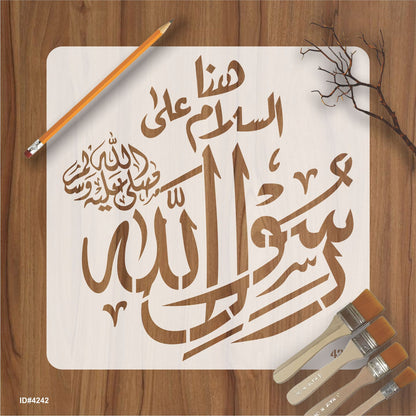 هنا
السلام على
رسول الله
صلى الله عليه وسلم
ID#4242